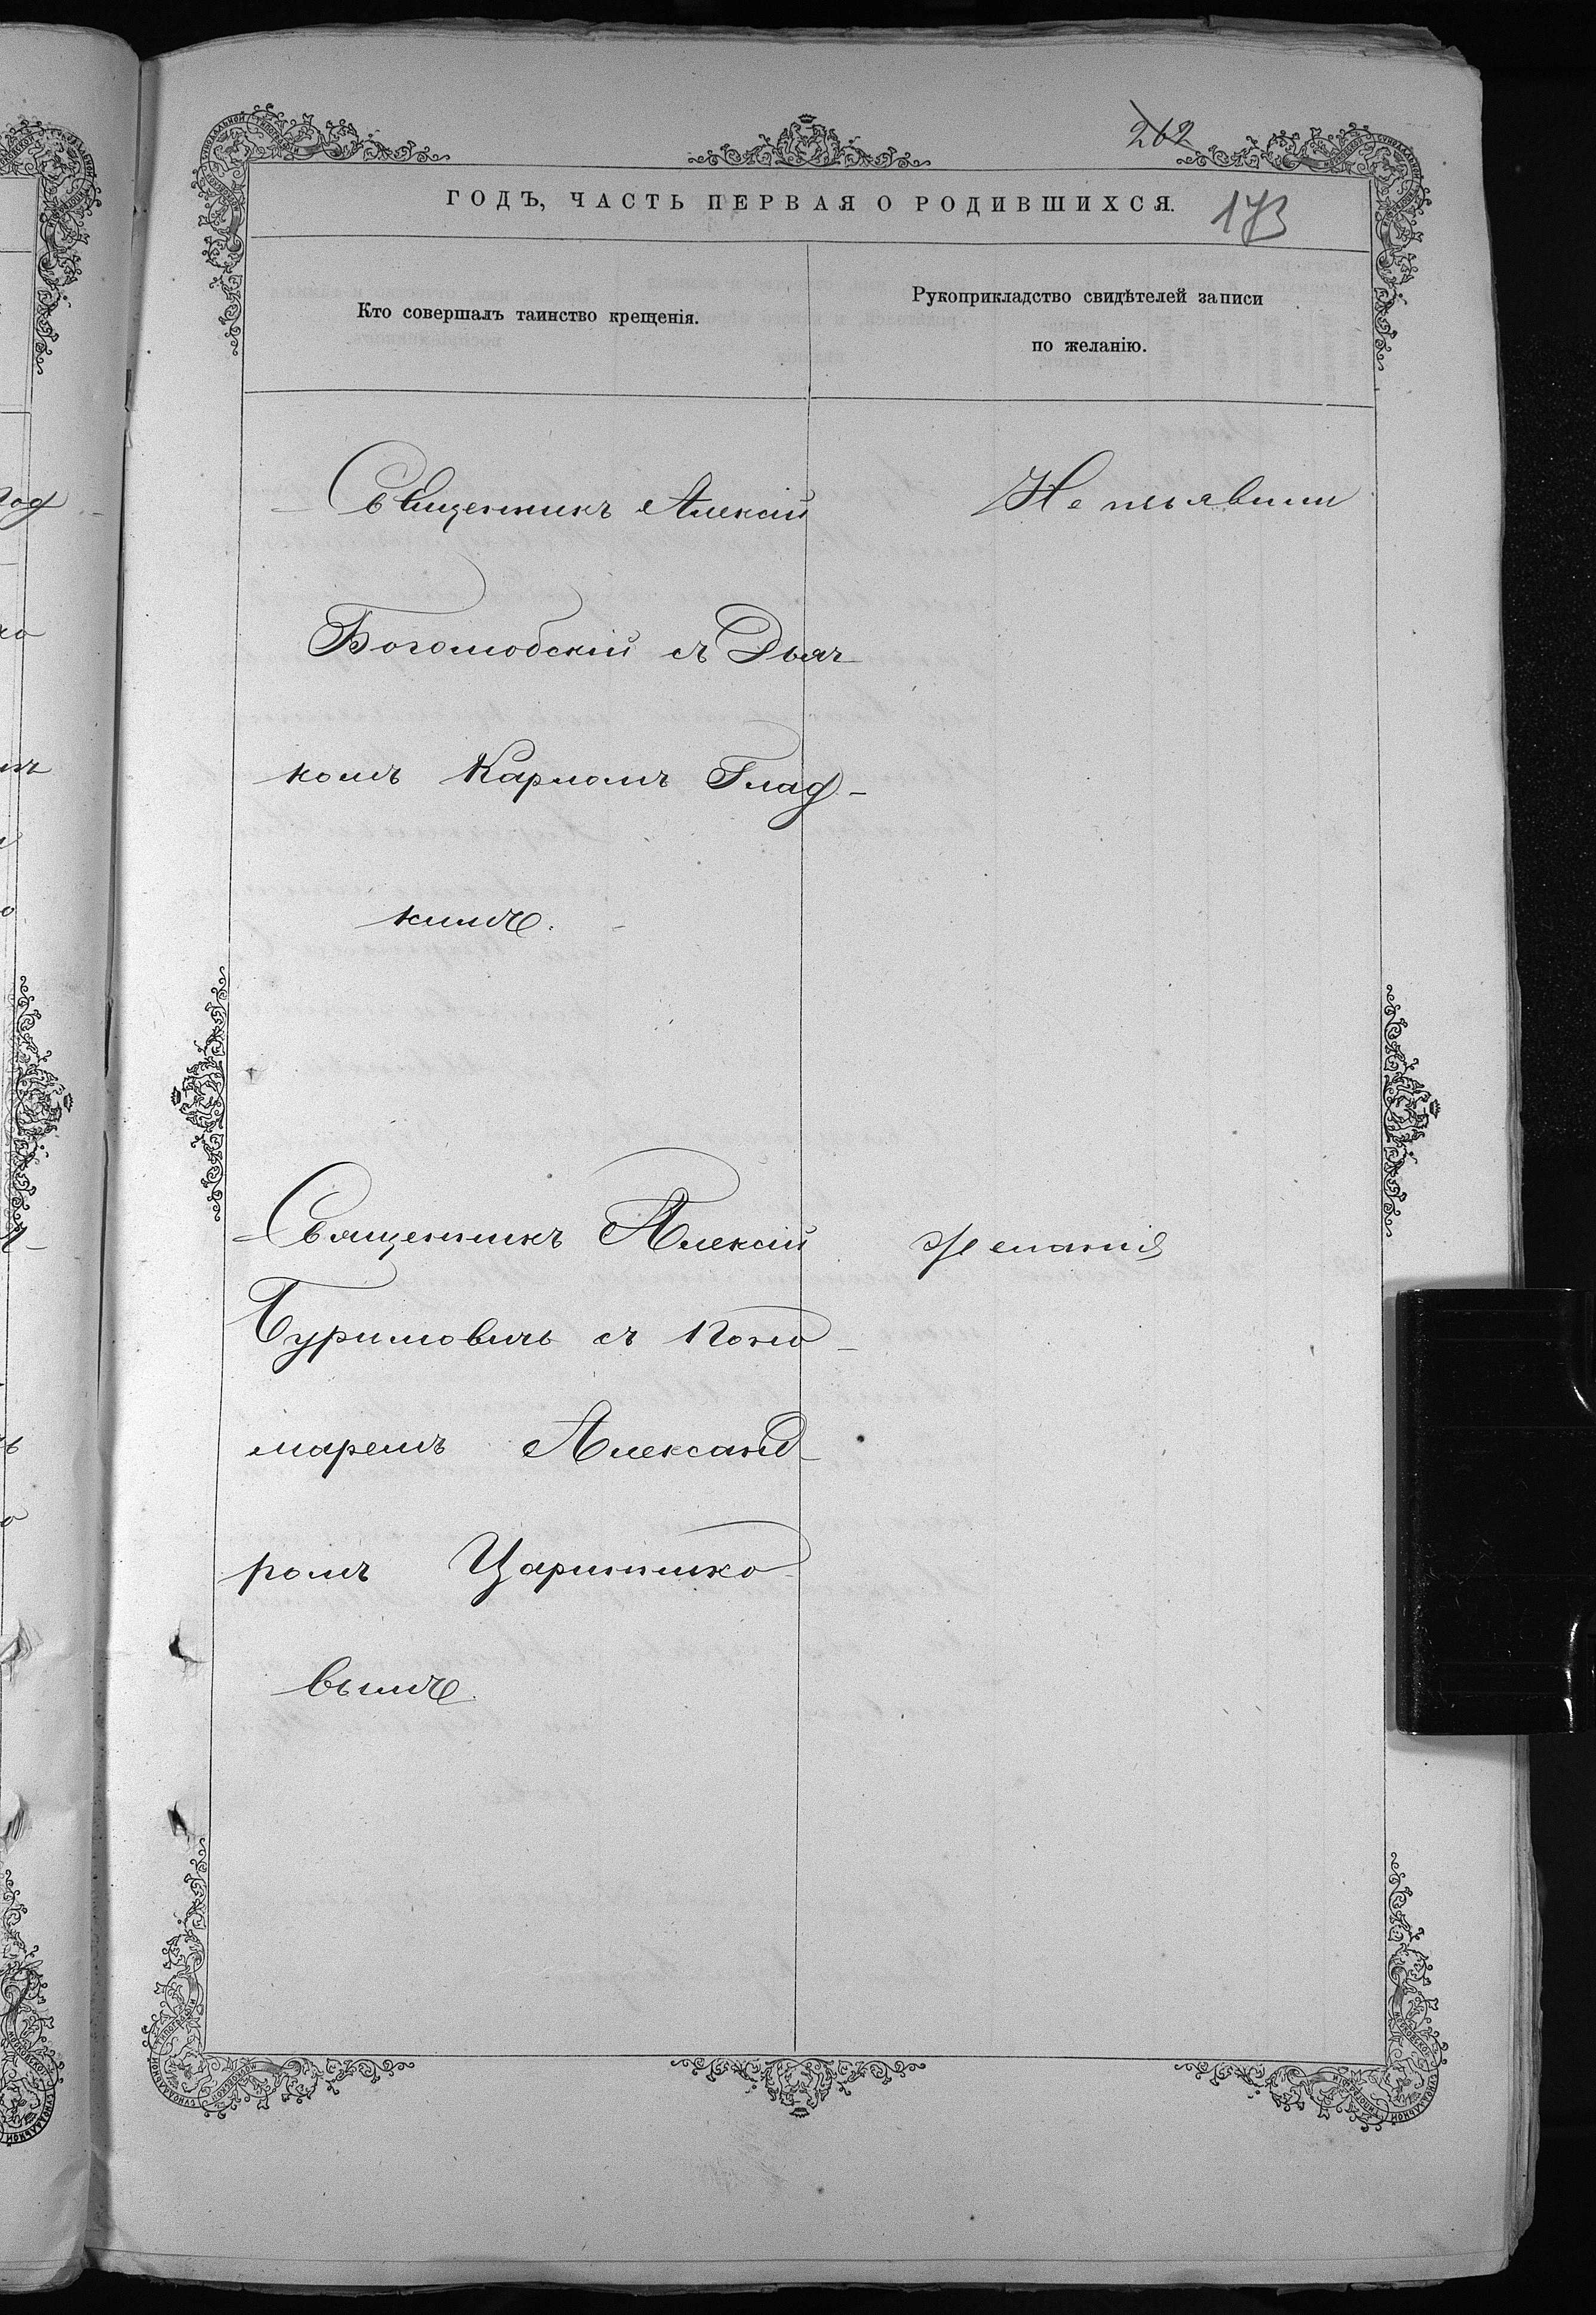 262
ГОДЪ, ЧАСТЬ ПЕРВАЯ О РОДИВШИХСЯ.
173
Кто совершалъ таинство крещенія.
Рукоприкладство свидѣтелей записи
по желанію.
Священникъ Алексій
Боголюбскій съ Дьяч
комъ Карпомъ Глад-
кимъ.
Не изъявили
Священникъ Алексій
Буримовичъ съ Поно-
маремъ Александ-
ромъ Царинико
вымъ.
желанія